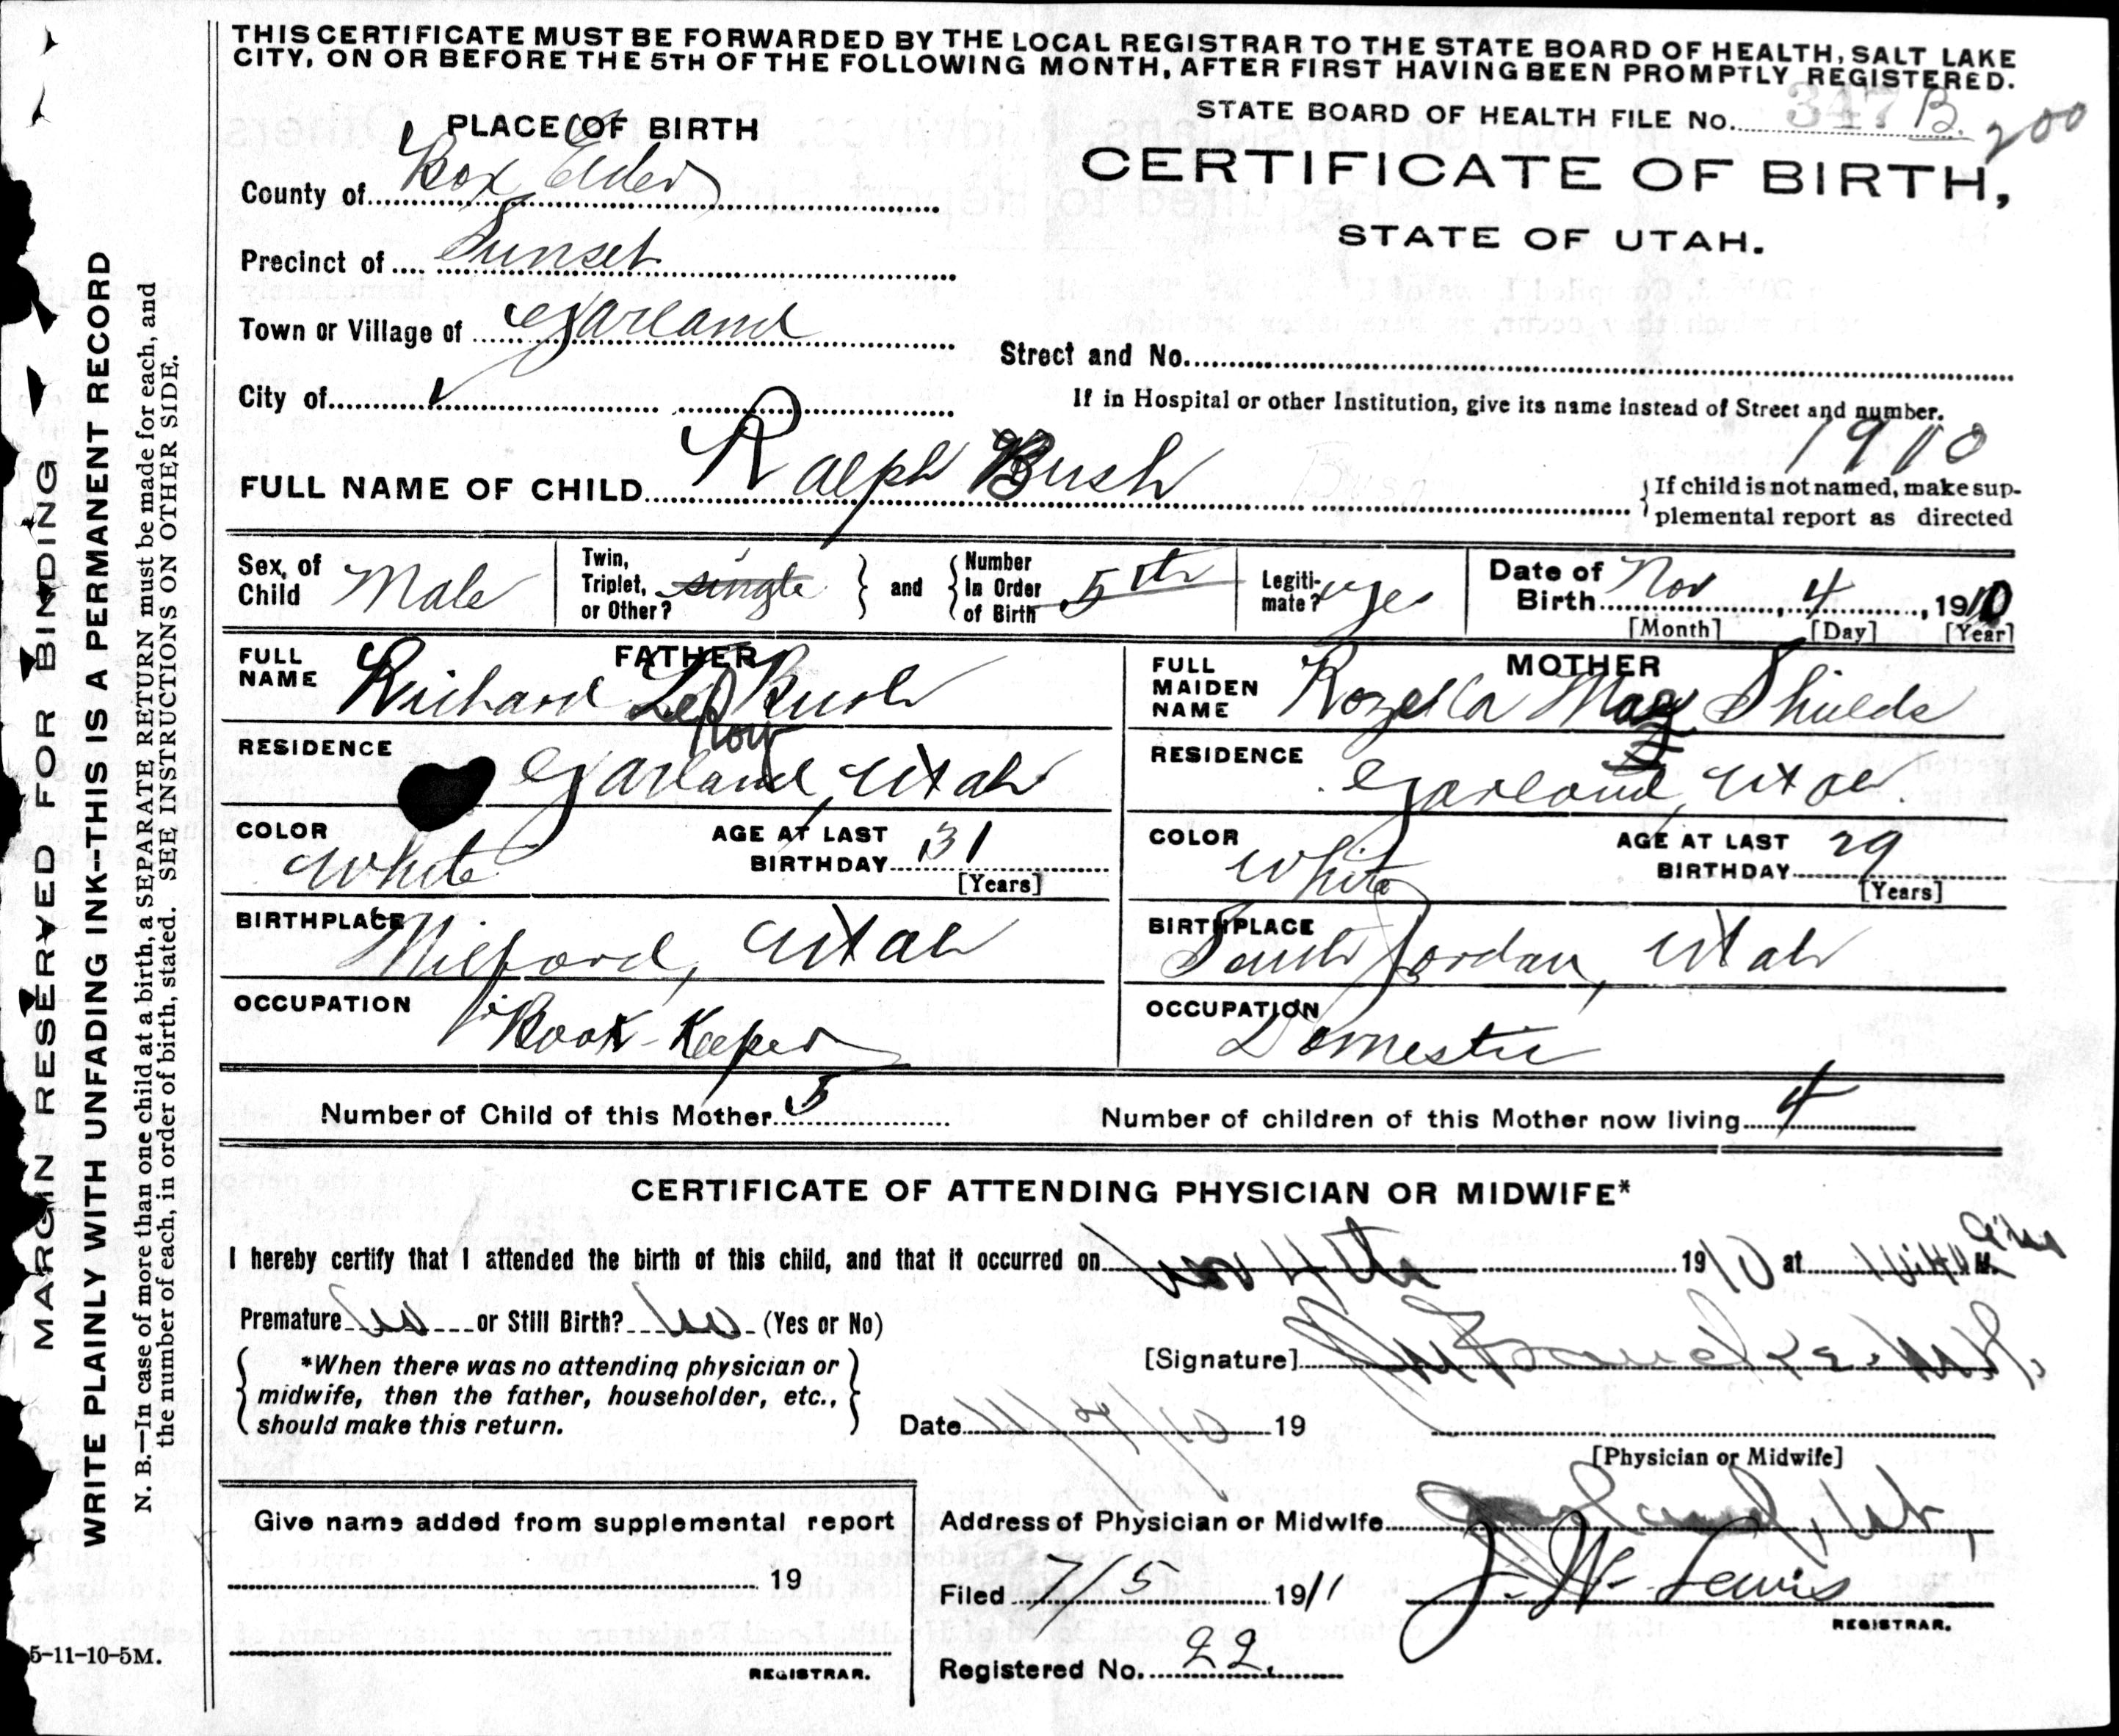 THIS CERTIFICATE MUST BE FORWARDED BY THE LOCAL REGISTRAR TO THE STATE BOARD OF HEALTH, SALT LAKE
CITY, ON OR BEFORE THE 5TH OF THE FOLLOWING MONTH, AFTER FIRST HAVING BEEN PROMPTLY REGISTERED.
STATE BOARD OF HEALTH FILE No. 347 B. 200
PLACE OF BIRTH
CERTIFICATE OF BIRTH,
STATE OF UTAH.
County of Box Elder
Precinct of Sunset
Town or Village of Garland
Street and No.
City of
If in Hospital or other Institution, give its name instead of Street and number.
1910
FULL NAME OF CHILD Ralph Bush
If child is not named, make sup-
plemental report as directed
Sex of Child Male
Twin, Triplet, or Other? single
and
Number In Order of Birth 5th
Legiti-mate? yes
Date of Birth Nov, 4, 1910
[Month] [Day] [Year]
FATHER
FULL NAME Richard LeRoy Bush
MOTHER
FULL MAIDEN NAME Rozella May Shields
RESIDENCE Garland, Utah
RESIDENCE Garland, Utah
COLOR White
AGE AT LAST BIRTHDAY 31 [Years]
COLOR White
AGE AT LAST BIRTHDAY 29 [Years]
BIRTHPLACE Milford, Utah
BIRTHPLACE South Jordan, Utah
OCCUPATION Book-Keeper
OCCUPATION Domestic
Number of Child of this Mother 5
Number of children of this Mother now living 4
CERTIFICATE OF ATTENDING PHYSICIAN OR MIDWIFE*
I hereby certify that I attended the birth of this child, and that it occurred on Nov 4th 1910 at M.
Premature No or Still Birth? No (Yes or No)
*When there was no attending physician or
midwife, then the father, householder, etc.,
should make this return.
[Signature]
Date 19
[Physician or Midwife]
Give name added from supplemental report
19
REGISTRAR.
Address of Physician or Midwife Garland, Ut.
Filed 7/5 1911 J. W. Lewis
REGISTRAR.
Registered No. 22.
MARGIN RESERVED FOR BINDING
WRITE PLAINLY WITH UNFADING INK--THIS IS A PERMANENT RECORD
N. B.—In case of more than one child at a birth, a SEPARATE RETURN must be made for each, and
the number of each, in order of birth, stated. SEE INSTRUCTIONS ON OTHER SIDE.
5-11-10-5M.